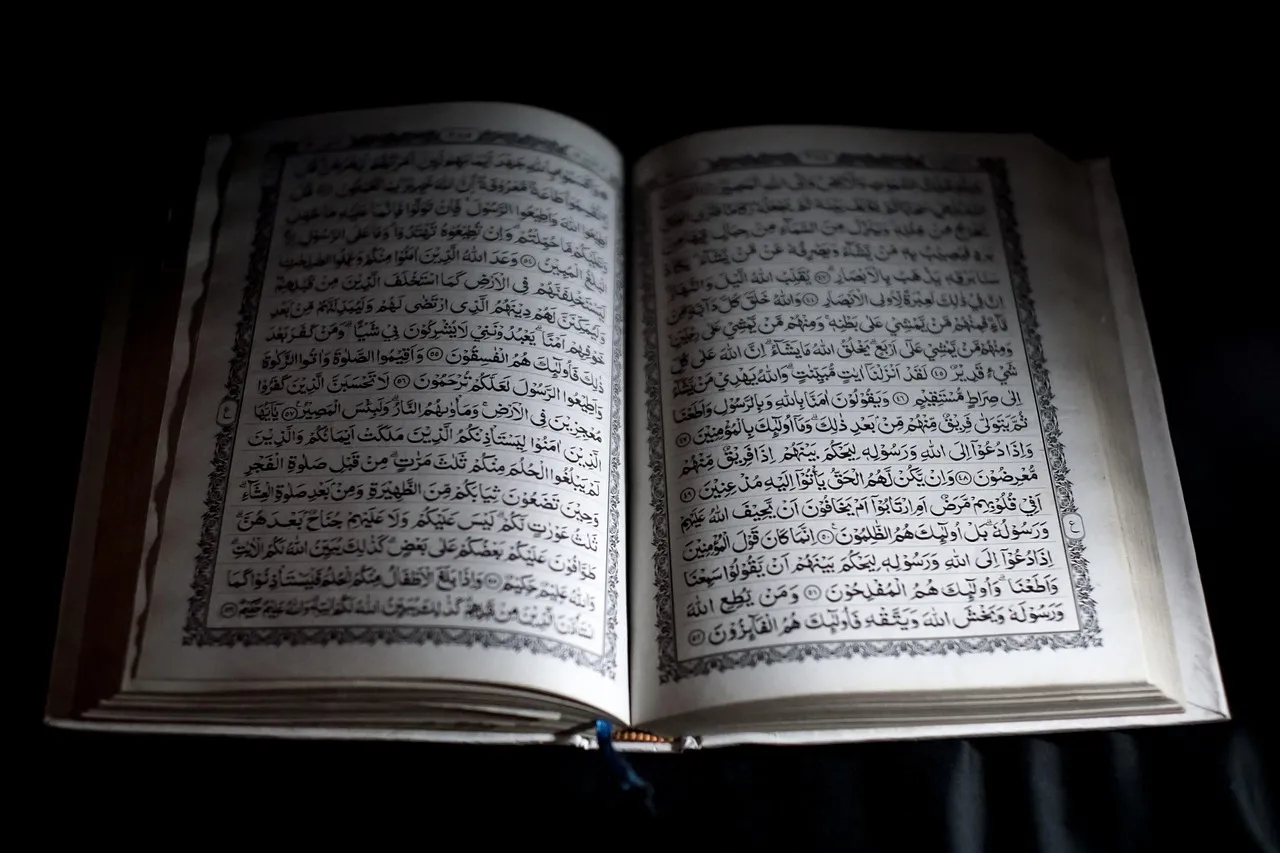 مُلْكُ السَّمٰوٰتِ وَالْاَرْضِ وَاِلَى اللّٰهِ الْمَصِيْرُ
يَخْرُجُ مِنْ خِلٰلِهٖ وَيُنَزِّلُ مِنَ السَّمَاۤءِ مِنْ جِبَالٍ فِيْهَا مِنْ
بَرَدٍ فَيُصِيْبُ بِهٖ مَنْ يَّشَاۤءُ وَيَصْرِفُهٗ عَنْ مَّنْ يَّشَاۤءُ يَكَادُ
سَنَا بَرْقِهٖ يَذْهَبُ بِالْاَبْصَارِ ۝٤٣ يُقَلِّبُ اللّٰهُ الَّيْلَ وَالنَّهَارَ
اِنَّ فِيْ ذٰلِكَ لَعِبْرَةً لِّاُولِى الْاَبْصَارِ ۝٤٤ وَاللّٰهُ خَلَقَ كُلَّ دَاۤبَّةٍ مِّنْ
مَّاۤءٍ فَمِنْهُمْ مَّنْ يَّمْشِيْ عَلٰى بَطْنِهٖ وَمِنْهُمْ مَّنْ يَّمْشِيْ عَلٰى رِجْلَيْنِ
وَمِنْهُمْ مَّنْ يَّمْشِيْ عَلٰٓى اَرْبَعٍ يَخْلُقُ اللّٰهُ مَا يَشَاۤءُ اِنَّ اللّٰهَ عَلٰى كُلِّ
شَيْءٍ قَدِيْرٌ ۝٤٥ لَقَدْ اَنْزَلْنَآ اٰيٰتٍ مُّبَيِّنٰتٍ وَاللّٰهُ يَهْدِيْ مَنْ يَّشَاۤءُ
اِلٰى صِرَاطٍ مُّسْتَقِيْمٍ ۝٤٦ وَيَقُوْلُوْنَ اٰمَنَّا بِاللّٰهِ وَبِالرَّسُوْلِ وَاَطَعْنَا
ثُمَّ يَتَوَلّٰى فَرِيْقٌ مِّنْهُمْ مِّنْ بَعْدِ ذٰلِكَ وَمَآ اُولٰۤىِٕكَ بِالْمُؤْمِنِيْنَ ۝٤٧
وَاِذَا دُعُوْٓا اِلَى اللّٰهِ وَرَسُوْلِهٖ لِيَحْكُمَ بَيْنَهُمْ اِذَا فَرِيْقٌ مِّنْهُمْ
مُّعْرِضُوْنَ ۝٤٨ وَاِنْ يَّكُنْ لَّهُمُ الْحَقُّ يَأْتُوْٓا اِلَيْهِ مُذْعِنِيْنَ ۝٤٩
اَفِيْ قُلُوْبِهِمْ مَّرَضٌ اَمِ ارْتَابُوْٓا اَمْ يَخَافُوْنَ اَنْ يَّحِيْفَ اللّٰهُ عَلَيْهِمْ
وَرَسُوْلُهٗ بَلْ اُولٰۤىِٕكَ هُمُ الظّٰلِمُوْنَ ۝٥٠ اِنَّمَا كَانَ قَوْلَ الْمُؤْمِنِيْنَ
اِذَا دُعُوْٓا اِلَى اللّٰهِ وَرَسُوْلِهٖ لِيَحْكُمَ بَيْنَهُمْ اَنْ يَّقُوْلُوْا سَمِعْنَا
وَاَطَعْنَا وَاُولٰۤىِٕكَ هُمُ الْمُفْلِحُوْنَ ۝٥١ وَمَنْ يُّطِعِ اللّٰهَ
وَرَسُوْلَهٗ وَيَخْشَ اللّٰهَ وَيَتَّقْهِ فَاُولٰۤىِٕكَ هُمُ الْفَاۤىِٕزُوْنَ ۝٥٢
ع
وَاَقْسَمُوْا بِاللّٰهِ جَهْدَ اَيْمَانِهِمْ لَىِٕنْ اَمَرْتَهُمْ لَيَخْرُجُنَّ قُلْ
لَّا تُقْسِمُوْا طَاعَةٌ مَّعْرُوْفَةٌ اِنَّ اللّٰهَ خَبِيْرٌ بِمَا تَعْمَلُوْنَ ۝٥٣ قُلْ
اَطِيْعُوا اللّٰهَ وَاَطِيْعُوا الرَّسُوْلَ فَاِنْ تَوَلَّوْا فَاِنَّمَا عَلَيْهِ مَا حُمِّلَ
وَعَلَيْكُمْ مَّا حُمِّلْتُمْ وَاِنْ تُطِيْعُوْهُ تَهْتَدُوْا وَمَا عَلَى الرَّسُوْلِ اِلَّا
الْبَلٰغُ الْمُبِيْنُ ۝٥٤ وَعَدَ اللّٰهُ الَّذِيْنَ اٰمَنُوْا مِنْكُمْ وَعَمِلُوا الصّٰلِحٰتِ
لَيَسْتَخْلِفَنَّهُمْ فِى الْاَرْضِ كَمَا اسْتَخْلَفَ الَّذِيْنَ مِنْ قَبْلِهِمْ
وَلَيُمَكِّنَنَّ لَهُمْ دِيْنَهُمُ الَّذِى ارْتَضٰى لَهُمْ وَلَيُبَدِّلَنَّهُمْ مِّنْ بَعْدِ
خَوْفِهِمْ اَمْنًا يَعْبُدُوْنَنِيْ لَا يُشْرِكُوْنَ بِيْ شَيْـًٔا وَمَنْ كَفَرَ بَعْدَ
ذٰلِكَ فَاُولٰۤىِٕكَ هُمُ الْفٰسِقُوْنَ ۝٥٥ وَاَقِيْمُوا الصَّلٰوةَ وَاٰتُوا الزَّكٰوةَ
وَاَطِيْعُوا الرَّسُوْلَ لَعَلَّكُمْ تُرْحَمُوْنَ ۝٥٦ لَا تَحْسَبَنَّ الَّذِيْنَ كَفَرُوْا
مُعْجِزِيْنَ فِى الْاَرْضِ وَمَأْوٰىهُمُ النَّارُ وَلَبِئْسَ الْمَصِيْرُ ۝٥٧ يٰٓاَيُّهَا
الَّذِيْنَ اٰمَنُوْا لِيَسْتَأْذِنْكُمُ الَّذِيْنَ مَلَكَتْ اَيْمَانُكُمْ وَالَّذِيْنَ
لَمْ يَبْلُغُوا الْحُلُمَ مِنْكُمْ ثَلٰثَ مَرّٰتٍ مِنْ قَبْلِ صَلٰوةِ الْفَجْرِ
وَحِيْنَ تَضَعُوْنَ ثِيَابَكُمْ مِّنَ الظَّهِيْرَةِ وَمِنْ بَعْدِ صَلٰوةِ الْعِشَاۤءِ
ثَلٰثُ عَوْرٰتٍ لَّكُمْ لَيْسَ عَلَيْكُمْ وَلَا عَلَيْهِمْ جُنَاحٌ بَعْدَهُنَّ
طَوّٰفُوْنَ عَلَيْكُمْ بَعْضُكُمْ عَلٰى بَعْضٍ كَذٰلِكَ يُبَيِّنُ اللّٰهُ لَكُمُ الْاٰيٰتِ
وَاللّٰهُ عَلِيْمٌ حَكِيْمٌ ۝٥٨ وَاِذَا بَلَغَ الْاَطْفَالُ مِنْكُمُ الْحُلُمَ فَلْيَسْتَأْذِنُوْا كَمَا
اسْتَأْذَنَ الَّذِيْنَ مِنْ قَبْلِهِمْ كَذٰلِكَ يُبَيِّنُ اللّٰهُ لَكُمْ اٰيٰتِهٖ وَاللّٰهُ عَلِيْمٌ حَكِيْمٌ ۝٥٩
ع